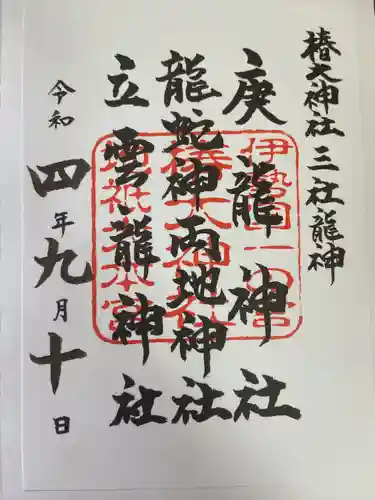 椿大神社三社龍神
庚龍神社
龍蛇神両地神社
立雲龍神社
令和四年九月十日
伊勢国一の宮
椿大神社
地祇大本宮